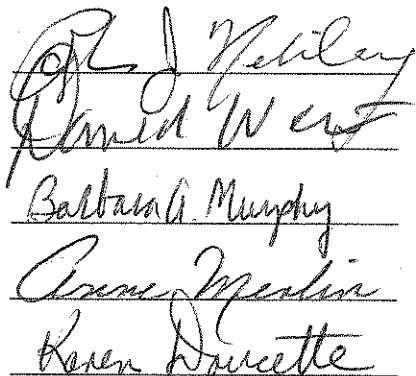 J
David West
Barbara A. Murphy
Anne Merlin
Karen Doucette